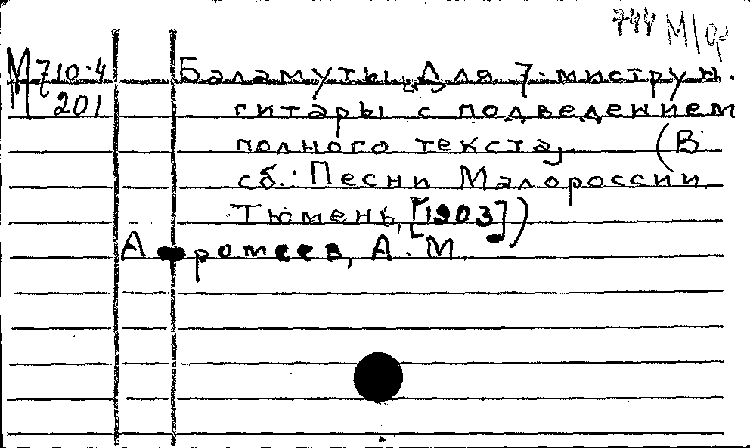 744 М/О
М 710-4 Баламуты. Для 7-миструн.
201 гитары с подведением
полного текста, (В
сб.: Песни Малороссии
Тюмень, [1903])
А ротеев, А. М.